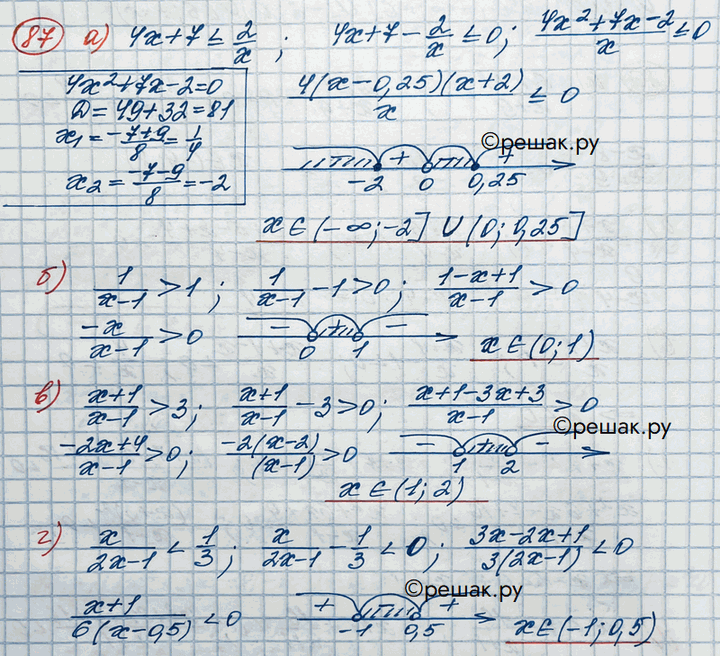 87 а) 4x+7 ≤ 2/x ; 4x+7 - 2/x ≤ 0; (4x²+7x-2)/x ≤ 0
4x²+7x-2=0
D=49+32=81
x₁ = (-7+9)/8 = 1/4
x₂ = (-7-9)/8 = -2
4(x-0,25)(x+2)/x ≤ 0
©решак.ру
+ +
-2 0 0,25
x∈(-∞;-2] ∪ (0; 0,25]
б) 1/(x-1) > 1 ; 1/(x-1) - 1 > 0 ; (1-x+1)/(x-1) > 0
-x/(x-1) > 0
- + -
0 1
x∈(0; 1)
в) (x+1)/(x-1) > 3; (x+1)/(x-1) - 3 > 0; (x+1-3x+3)/(x-1) > 0
©решак.ру
(-2x+4)/(x-1) > 0; -2(x-2)/(x-1) > 0
- + -
1 2
x∈(1; 2)
г) x/(2x-1) < 1/3; x/(2x-1) - 1/3 < 0; (3x-2x+1)/3(2x-1) < 0
©решак.ру
(x+1)/6(x-0,5) < 0
+ +
-1 0,5
x∈(-1; 0,5)